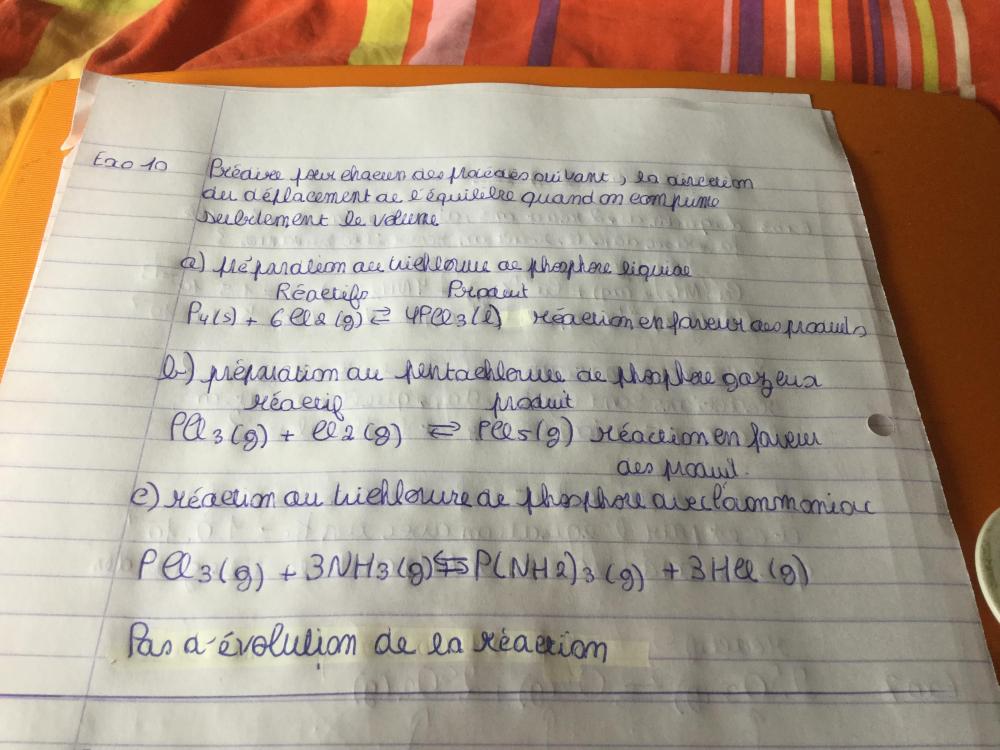 Exo 10 Prédire pour chacun des procédés suivant, la direction
du déplacement de l'équilibre quand on comprime
subitement le volume
a) préparation du trichlorure de phosphore liquide
Réactifs Produit
P4(s) + 6Cl2(g) ⇄ 4PCl3(l) réaction en faveur des produits
b) préparation du pentachlorure de phosphore gazeux
réactif produit
PCl3(g) + Cl2(g) ⇄ PCl5(g) réaction en faveur
des produit.
c) réaction du trichlorure de phosphore avec l'ammoniac
PCl3(g) + 3NH3(g) ⇆ P(NH2)3(g) + 3HCl(g)
Pas d'évolution de la réaction